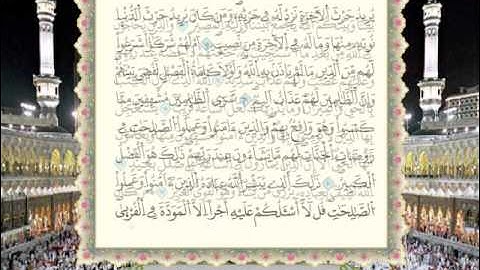 يُرِيدُ حَرْثَ الْآخِرَةِ نَزِدْ لَهُ فِي حَرْثِهِ وَمَن كَانَ يُرِيدُ حَرْثَ الدُّنْيَا
نُؤْتِهِ مِنْهَا وَمَا لَهُ فِي الْآخِرَةِ مِن نَّصِيبٍ أَمْ لَهُمْ شُرَكَٰٓؤُا شَرَعُوا
لَهُم مِّنَ الدِّينِ مَا لَمْ يَأْذَن بِهِ اللَّهُ وَلَوْلَا كَلِمَةُ الْفَصْلِ لَقُضِيَ بَيْنَهُمْ
وَإِنَّ الظَّٰلِمِينَ لَهُمْ عَذَابٌ أَلِيمٌ تَرَى الظَّٰلِمِينَ مُشْفِقِينَ مِمَّا
كَسَبُوا وَهُوَ وَاقِعٌ بِهِمْ وَالَّذِينَ ءَامَنُوا وَعَمِلُوا الصَّٰلِحَٰتِ فِي
رَوْضَاتِ الْجَنَّاتِ لَهُم مَّا يَشَآءُونَ عِندَ رَبِّهِمْ ذَٰلِكَ هُوَ الْفَضْلُ
الْكَبِيرُ ذَٰلِكَ الَّذِي يُبَشِّرُ اللَّهُ عِبَادَهُ الَّذِينَ ءَامَنُوا وَعَمِلُوا
الصَّٰلِحَٰتِ قُل لَّا أَسْـَٔلُكُمْ عَلَيْهِ أَجْرًا إِلَّا الْمَوَدَّةَ فِي الْقُرْبَىٰ